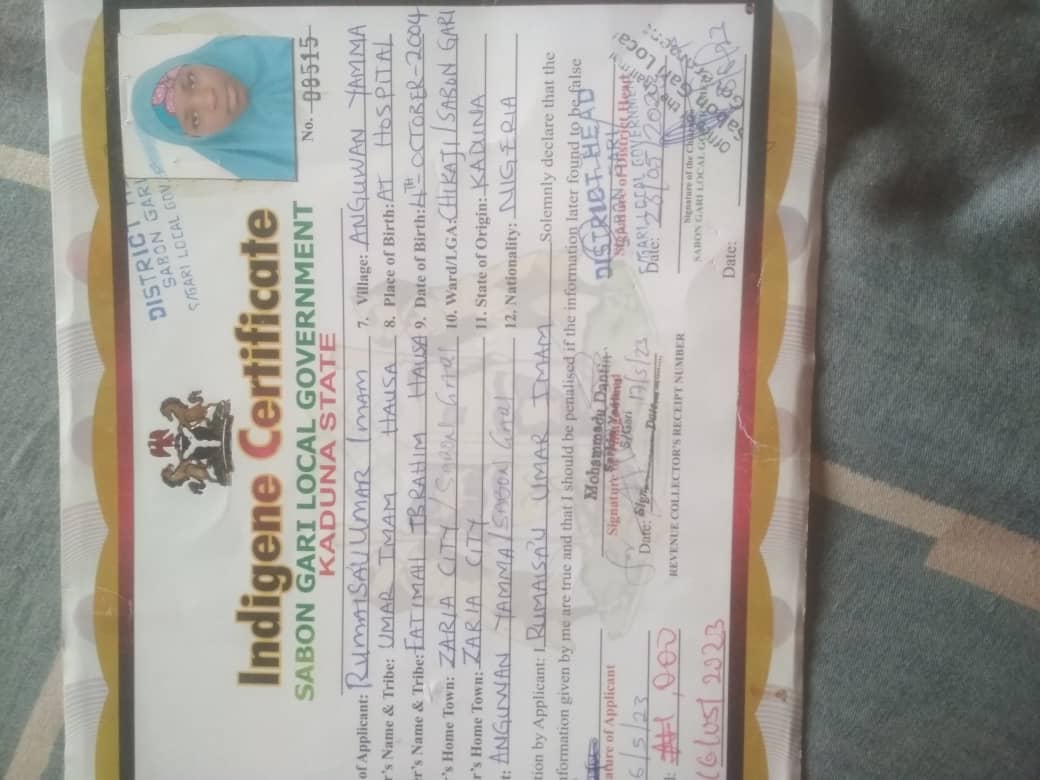 DISTRICT
SABON GARI
S/GARI LOCAL GOV
No. 08515
Indigene Certificate
SABON GARI LOCAL GOVERNMENT
KADUNA STATE
of Applicant: RUMAISA'U UMAR IMAM 7. Village: ANGUWAN YAMMA
r's Name & Tribe: UMAR IMAM HAUSA 8. Place of Birth: AT HOSPITAL
er's Name & Tribe: FATIMAH IBRAHIM HAUSA 9. Date of Birth: 4TH-OCTOBER-2004
r's Home Town: ZARIA CITY/SABON GARI 10. Ward/LGA: CHIKAJI/SABON GARI
r's Home Town: ZARIA CITY 11. State of Origin: KADUNA
t: ANGUWAN YAMMA/SABON GARI 12. Nationality: NIGERIA
tion by Applicant: I RUMAISA'U UMAR IMAM Solemnly declare that the
nformation given by me are true and that I should be penalised if the information later found to be false
DISTRICT HEAD
ature of Applicant
Mohammadu Dantin
Signature of
S/Gari
Signature of District Head
S/GARI LOCAL GOVERNMENT
6/5/23
Date: Sign. Date 17/5/23
Date: 23/05/202
Signature of the
SABON GARI LOCAL
REVENUE COLLECTOR'S RECEIPT NUMBER
Date: